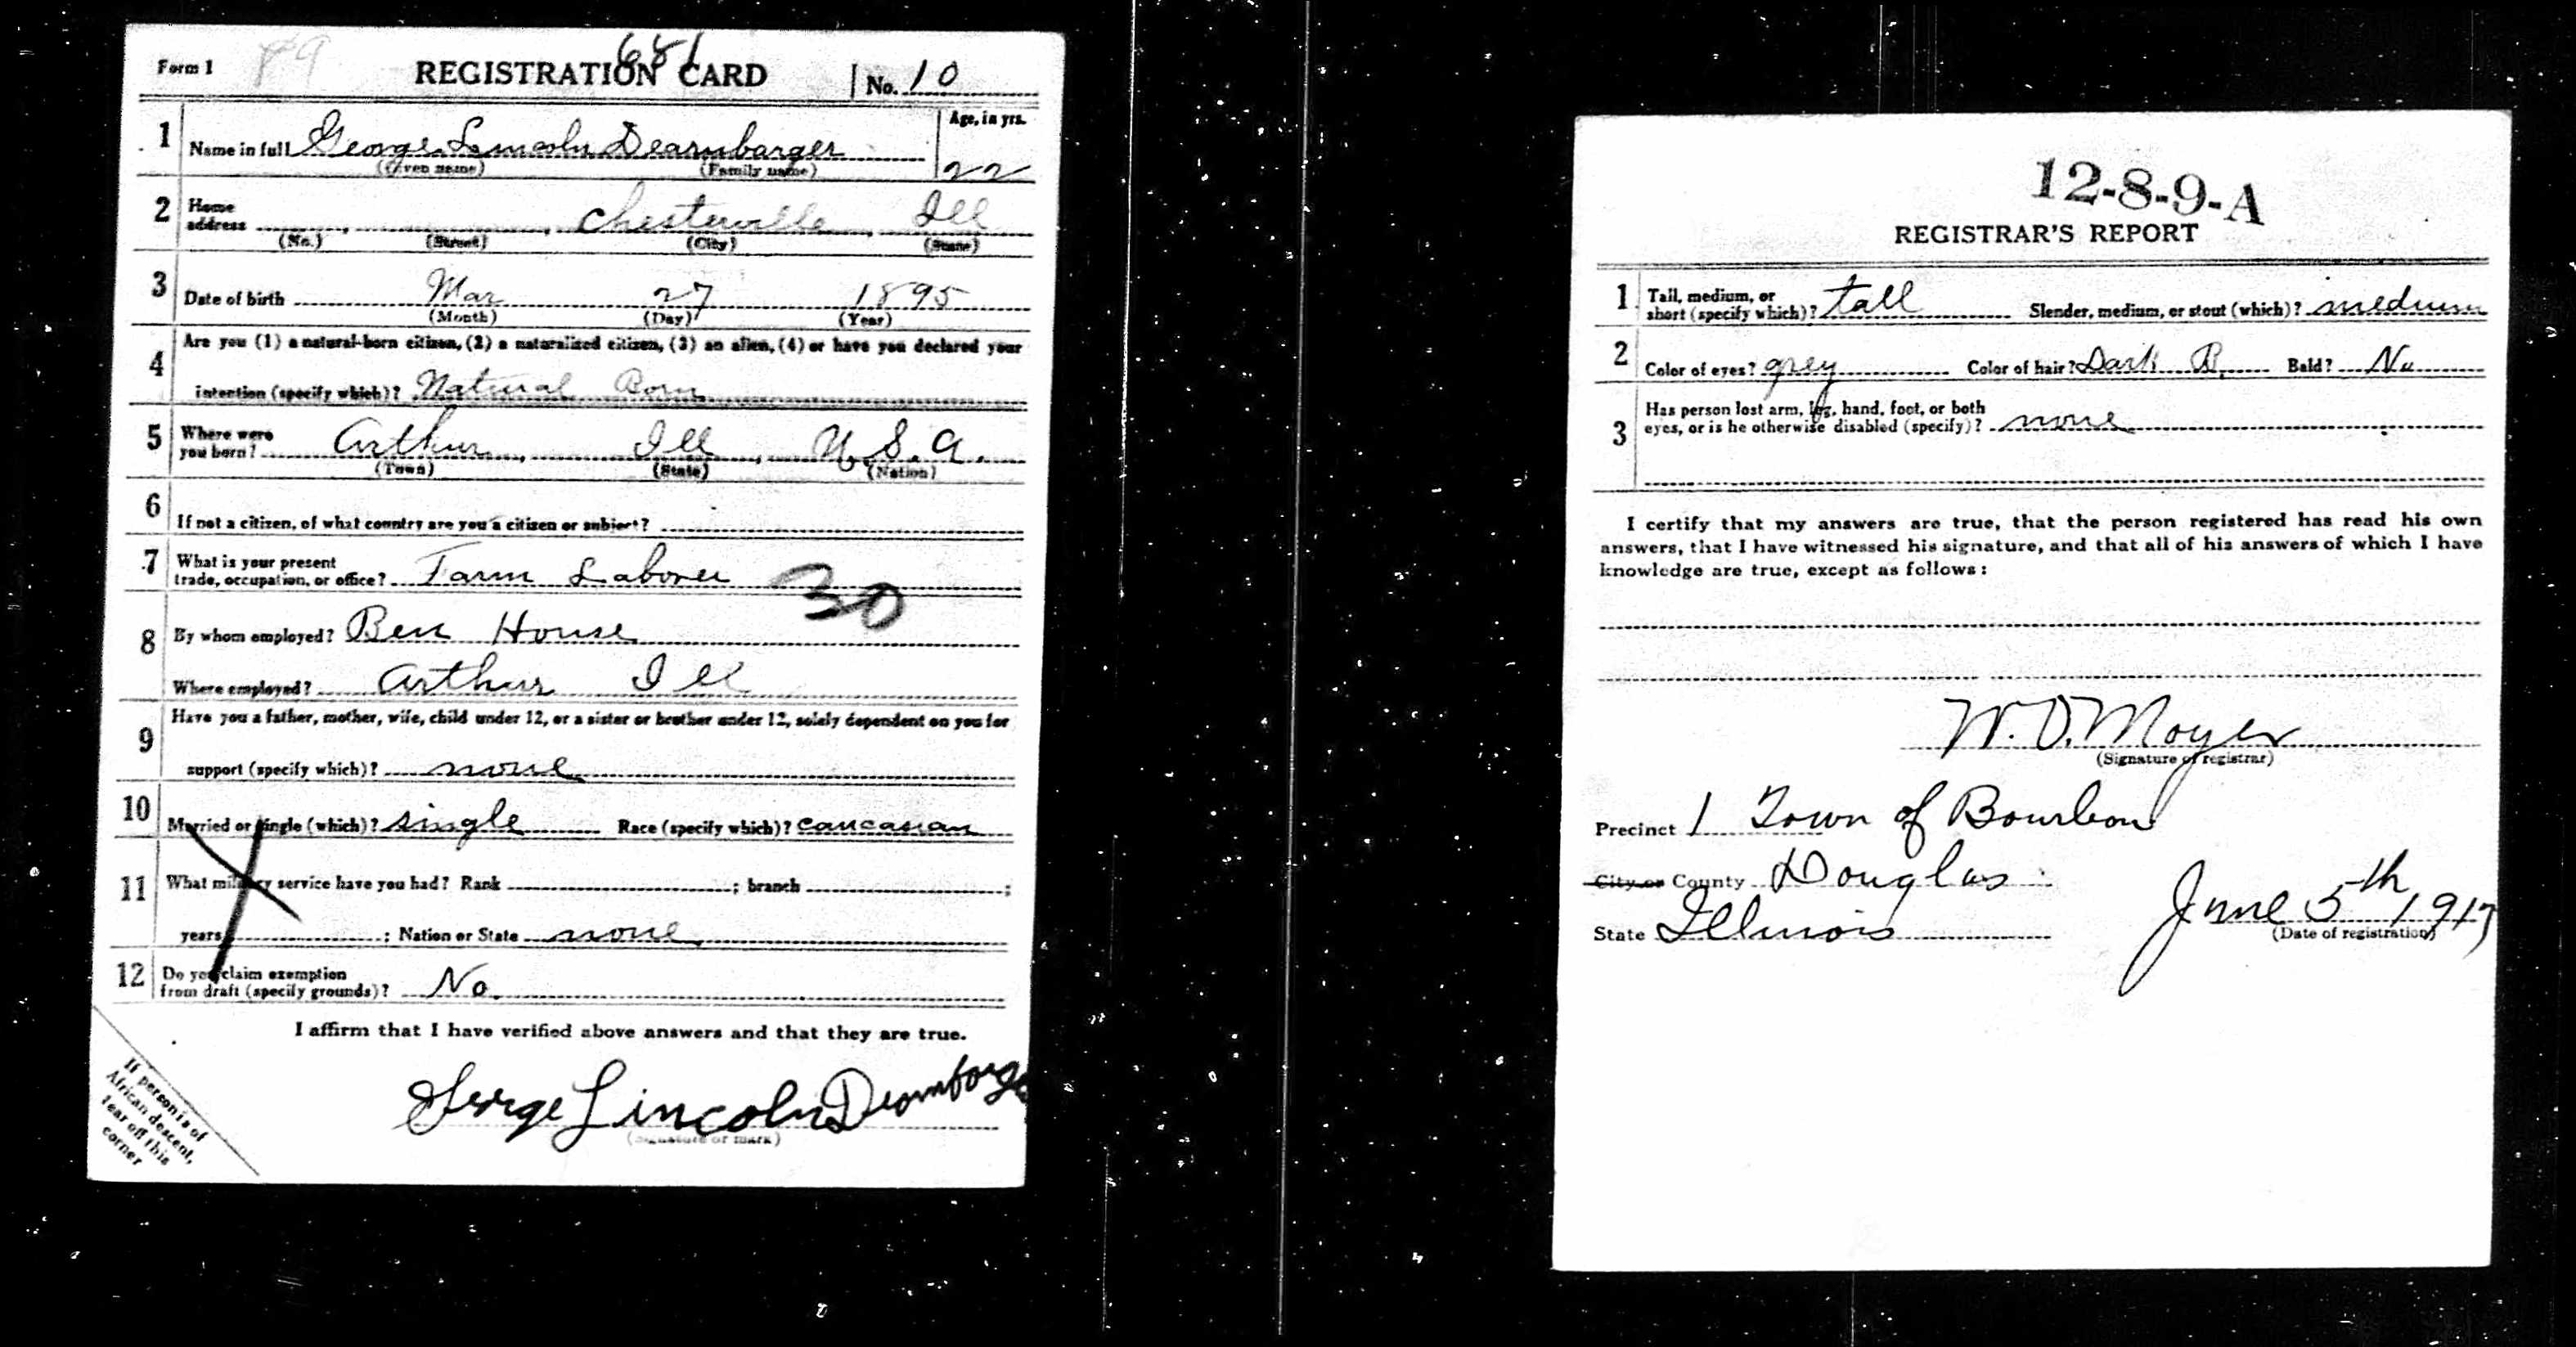 681
Form 1 89 REGISTRATION CARD No. 10
1 Name in full George Lincoln Dearnbarger Age, in yrs. 22
(Given name) (Family name)
2 Home address Chesterville Ill
(No.) (Street) (City) (State)
3 Date of birth Mar 27 1895
(Month) (Day) (Year)
4 Are you (1) a natural-born citizen, (2) a naturalized citizen, (3) an alien, (4) or have you declared your
intention (specify which)? Natural Born
5 Where were you born? Arthur Ill U.S.A.
(Town) (State) (Nation)
6 If not a citizen, of what country are you a citizen or subject?
7 What is your present
trade, occupation, or office? Farm Laborer
30
8 By whom employed? Ben House
Where employed? Arthur Ill
9 Have you a father, mother, wife, child under 12, or a sister or brother under 12, solely dependent on you for
support (specify which)? none
10 Married or single (which)? single Race (specify which)? caucasian
11 What military service have you had? Rank ; branch ;
years ; Nation or State none
12 Do you claim exemption
from draft (specify grounds)? No.
I affirm that I have verified above answers and that they are true.
George Lincoln Dearnbarger
(Signature or mark)
If person is of
African descent,
tear off this
corner
12-8-9-A
REGISTRAR'S REPORT
1 Tall, medium, or
short (specify which)? tall Slender, medium, or stout (which)? medium
2 Color of eyes? grey Color of hair? Dark B. Bald? No
3 Has person lost arm, leg, hand, foot, or both
eyes, or is he otherwise disabled (specify)? none
I certify that my answers are true, that the person registered has read his own
answers, that I have witnessed his signature, and that all of his answers of which I have
knowledge are true, except as follows:
W. O. Moyer
(Signature of registrar)
Precinct 1 Town of Bourbon
City or County Douglas
State Illinois June 5th, 1917
(Date of registration)